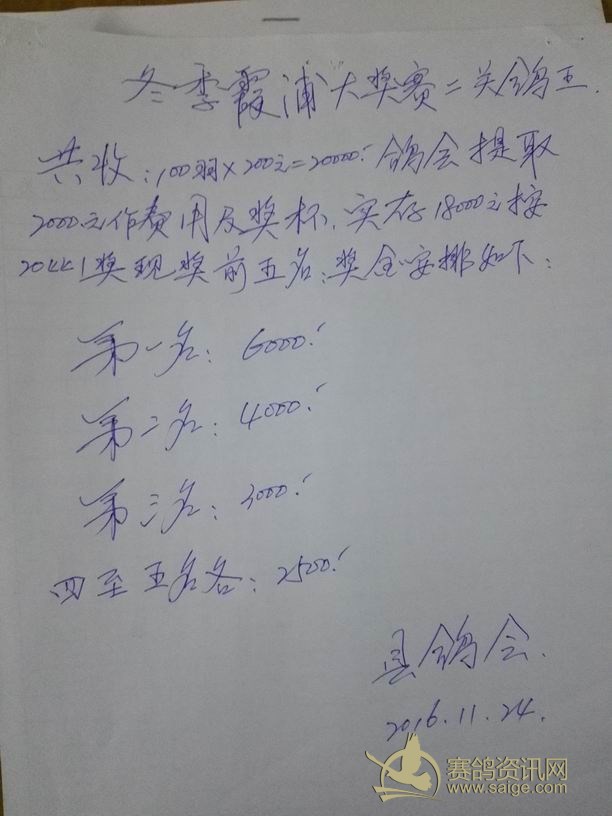 冬季霞浦大奖赛二关鸽王.
共收:100羽×200元=20000.- 鸽会提取
2000元作费用及奖杯,实存18000元按
20取1奖现奖前五名;奖金安排如下:
第一名: 6000.-
第二名: 4000.-
第三名: 3000.-
四至五名各: 2500.-
县鸽会.
2016.11.24.
赛鸽资讯网
www.saige.com